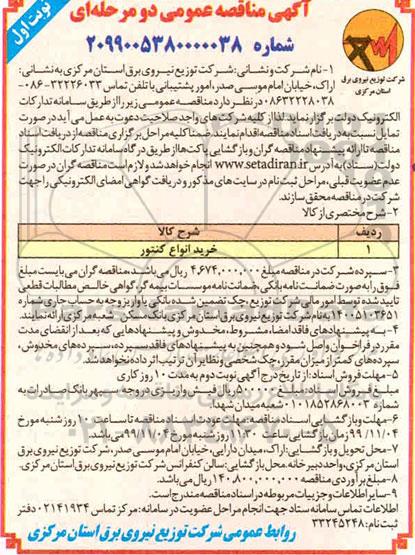 آگهی مناقصه عمومی دو مرحله‌ای
نوبت اول
شماره ۲۰۹۹۰۰۵۳۸۰۰۰۰۰۳۸
شرکت توزیع نیروی برق
استان مرکزی
۱- نام شرکت و نشانی: شرکت توزیع نیروی برق استان مرکزی به نشانی:
اراک، خیابان امام موسی صدر، امور پشتیبانی با تلفن تماس ۳۲۲۲۶۰۳۳-۰۸۶
۰۸۶۳۲۲۲۸۰۳۸ در نظر دارد مناقصه عمومی زیر را از طریق سامانه تدارکات
الکترونیک دولت برگزار نماید. لذا از کلیه شرکت‌های واجد صلاحیت دعوت به عمل می‌آید در صورت
تمایل نسبت به دریافت اسناد مناقصه اقدام نمایند. ضمنا کلیه مراحل برگزاری مناقصه از دریافت اسناد
مناقصه تا ارائه پیشنهاد مناقصه گران و بازگشایی پاکت‌ها از طریق درگاه سامانه تدارکات الکترونیک
دولت (ستاد) به آدرس www.setadiran.ir انجام خواهد شد و لازم است مناقصه گران در صورت
عدم عضویت قبلی، مراحل ثبت نام در سایت‌های مذکور و دریافت گواهی امضای الکترونیکی را جهت
شرکت در مناقصه محقق سازند.
۲- شرح مختصری از کالا
ردیف شرح کالا
۱ خرید انواع کنتور
۳- سپرده شرکت در مناقصه مبلغ ۴,۶۷۴,۰۰۰,۰۰۰ ریال می‌باشد. مناقصه گران می‌بایست مبلغ
فوق را به صورت ضمانت نامه بانکی، ضمانت نامه موسسات بیمه گر، گواهی خالص مطالبات قطعی
تایید شده توسط امور مالی شرکت توزیع، چک تضمین شده بانکی یا واریز وجه به حساب جاری شماره
۱۴۰۰۵۱۰۳۶۵۱ به نام شرکت توزیع نیروی برق استان مرکزی بانک مسکن شعبه مرکزی ارائه نمایند.
۴- به پیشنهادهای فاقد امضا، مشروط، مخدوش و پیشنهادهایی که بعد از انقضای مدت
مقرر در فراخوان واصل شود و همچنین به پیشنهادهای فاقد سپرده، سپرده‌های مخدوش،
سپرده‌های کمتر از میزان مقرر، چک شخصی و نظایر آن ترتیب اثر داده نخواهد شد.
۵- مهلت فروش اسناد: از تاریخ درج آگهی نوبت دوم به مدت ۱۰ روز کاری
مبلغ فروش اسناد: مبلغ ۵۰۰,۰۰۰ ریال فیش واریزی در وجه سپهر بانک صادرات به
شماره ۰۱۰۱۸۵۲۸۶۸۰۰۳ شعبه میدان شهدا.
۶- مهلت و بازگشایی اسناد مناقصه: مدت عودت اسناد مناقصه تا ساعت ۱۰ روز شنبه مورخ
۹۹/۱۱/۰۴ زمان بازگشایی ساعت ۱۱:۳۰ روز شنبه مورخ ۹۹/۱۱/۰۴ می‌باشد.
۷- محل تحویل و بازگشایی: اراک، میدان دارایی، خیابان امام موسی صدر، شرکت توزیع نیروی برق
استان مرکزی، واحد دبیرخانه. محل بازگشایی: سالن کنفرانس شرکت توزیع نیروی برق استان مرکزی.
۸- مبلغ برآوردی مناقصه ۱۴۰,۸۰۰,۰۰۰,۰۰۰ ریال می‌باشد.
۹- سایر اطلاعات و جزییات مربوطه در اسناد مناقصه مندرج است.
اطلاعات تماس سامانه ستاد جهت انجام مراحل عضویت در سامانه: مرکز تماس ۰۲۱۴۱۹۳۴ دفتر
ثبت نام: ۳۳۲۴۵۲۴۸
روابط عمومی شرکت توزیع نیروی برق استان مرکزی